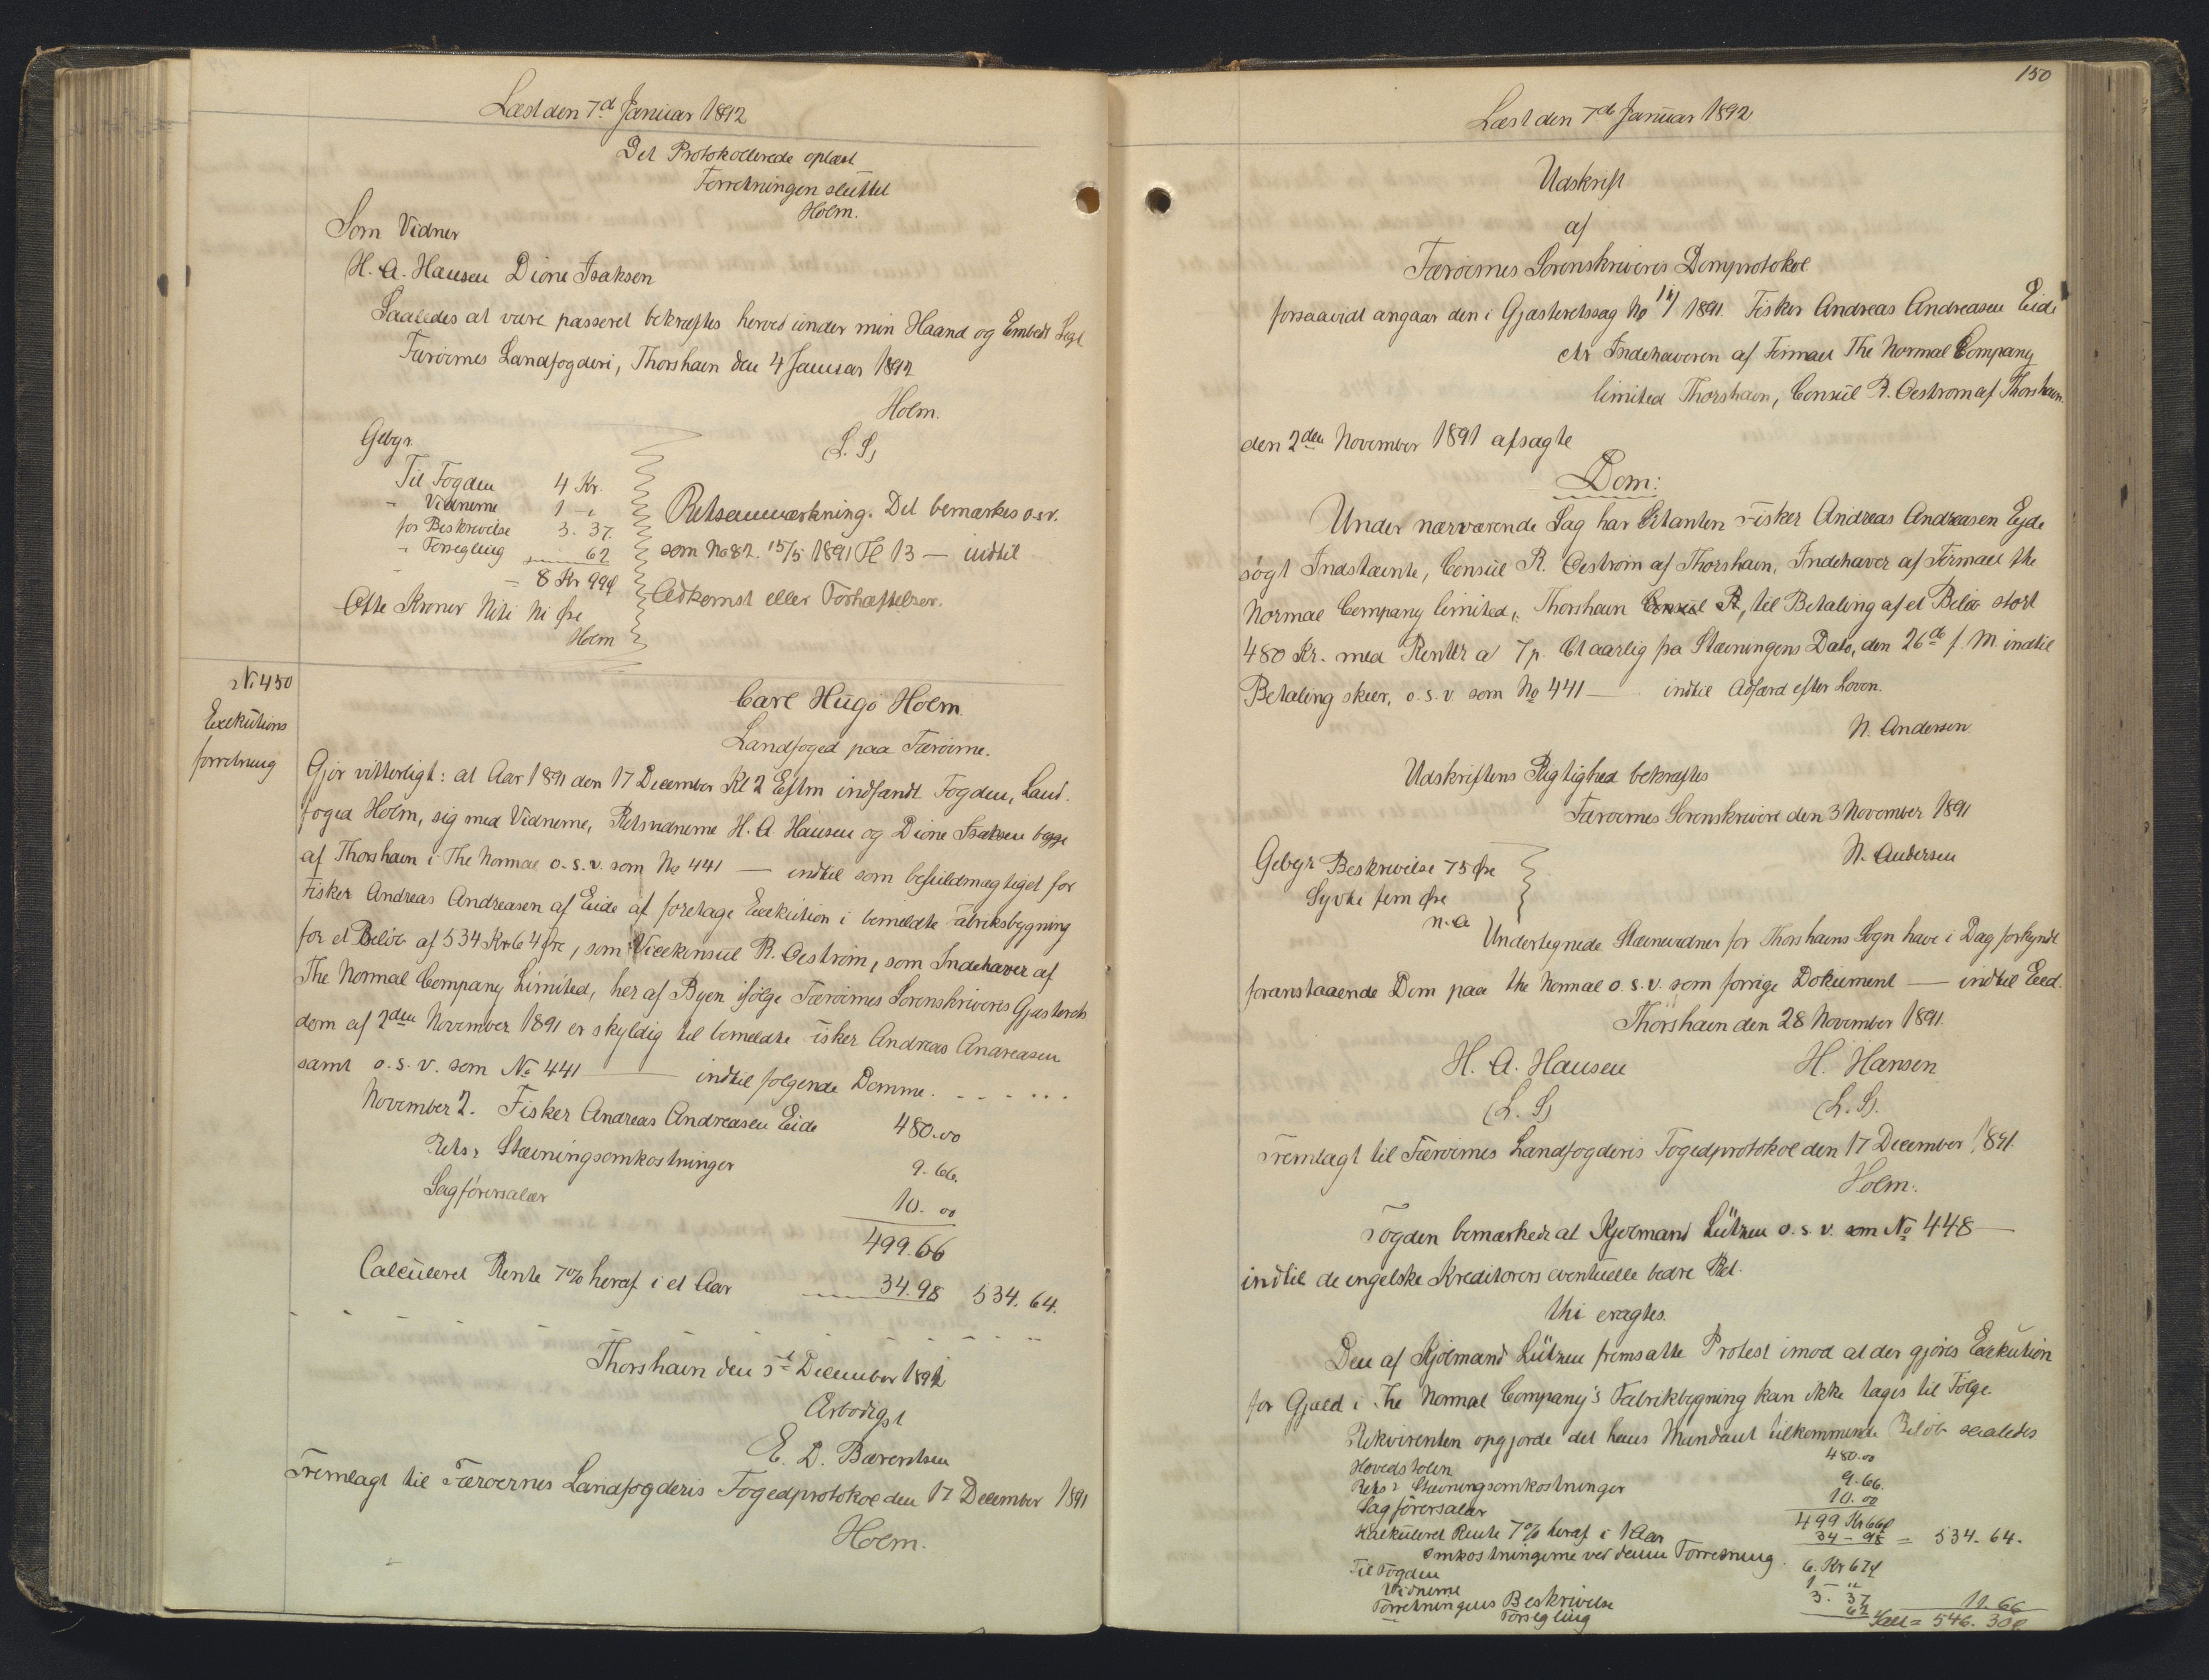 Læst den 7d Januar 1892
Det Protokollerede oplæst
Forretningen sluttet
Holm.
Som Vidner
H. A. Hansen Dione Isaksen
Saaledes at være passeret bekræftes herved under min Haand og Embeds Segl
Færøernes Landfogderi, Thorshavn den 4 Januar 1892
Holm.
(L. S)
Gebyr.
Til Fogden 4 Kr.
" Vidnerne 1 - "
for Beskrivelse 3. 37.
" Forsegling 62
= 8 Kr 99 Ø
Otte Kroner Niti Ni Øre
Holm
Retsanmærkning. Det bemærkes o.s.v.
som No 82. 15/5 1891 Fl 13 — indtil
Adkomst eller Forhæftelser.
No 450
Exekutions
forretning
Carl Hugo Holm.
Landfoged paa Færøerne.
Gjør vitterligt: at Aar 1891 den 17 December Kl 2 Eftm indfandt Fogden, Land-
foged Holm, sig med Vidnerne, Retsvidnerne H. A. Hansen og Dione Isaksen begge
af Thorshavn i The Normal o. s. v. som No 441 — indtil som befuldmægtiget for
Fisker Andreas Andreasen af Eide at foretage Exekution i bemeldte Fabriksbygning
for et Beløb af 534 Kr 64 Øre, som Vicekonsul R. Oestrøm, som Indehaver af
The Normal Company Limited, her af Byen ifølge Færøernes Sorenskriveris Gjæsterets
dom af 2den November 1891 er skyldig til bemeldte Fisker Andreas Andreasen
samt o. s. v. som No 441 — indtil følgende Domme. - - - - - -
November 2. Fisker Andreas Andreasen Eide 480.00
Rets & Stævningsomkostninger 9.66.
Sagførersalær 10. 00
499.66
Calculeret Rente 7% heraf i et Aar 34.98 534. 64.
Thorshavn den 5d December 1891
Ærbødigst
E. D. Bærentsen
Fremlagt til Færøernes Landfogderis Fogedprotokol den 17 December 1891
Holm.
150
Læst den 7de Januar 1892
Udskrift
af
Færøernes Sorenskriveris Domprotokol
forsaavidt angaar den i Gjæsteretssag No 1891. Fisker Andreas Andreasen Eide
ctr Indehaveren af Firmaet The Normal Company
limited Thorshavn, Consul R. Oestrøm af Thorshavn.
den 2den November 1891 afsagte
Dom:
Under nærværende Sag har Citanten Fisker Andreas Andreasen Eyde
søgt Indstævnte, Consul R. Oestrøm af Thorshavn, Indehaver af Firmaet the
Normal Company limited, Thorshavn Consul R, til Betaling af et Beløb stort
480 Kr. med Renter a 7 p. Ct aarlig fra Stævningens Dato, den 26de f. M. indtil
Betaling skeer, o. s. v som No 441 — indtil Adfærd efter Loven.
N. Andersen
Udskriftens Rigtighed bekræftes
Færøernes Sorenskriveri den 3 November 1891
N. Andersen
Gebyr Beskrivelse 75 Øre
Syvti fem Øre
N. A
Undertegnede Stævnevidner for Thorshavns Sogn have i Dag forkyndt
foranstaaende Dom paa the Normal o. s. v. som forrige Dokument — indtil Eed.
Thorshavn den 28 November 1891.
H. A. Hansen H. Hansen
(L. S) (L. S).
Fremlagt til Færøernes Landfogderis Fogedprotokol den 17 December 1891.
Holm.
Fogden bemærkede at Kjøbmand Lützen o. s. v. som No 448 —
indtil de engelske Kreditorers eventuelle bedre Ret.
Thi eragtes.
Den af Kjøbmand Lützen fremsatte Protest imod at der gjøres Exekution
for Gjæld i The Normal Company's Fabrikbygning kan ikke tages til Følge.
Rekvirenten opgjorde det hans Mandant tilkommende Beløb saaledes
Hovedstolen 480.00
Rets & Stævningsomkostninger 9.66.
Sagførersalær 10.00
499 Kr 66 Ø
Kalkuleret Rente 7% heraf i 1 Aar 34 - 98 = 534. 64.
Omkostningerne ved denne Forretning.
Til Fogden 6. Kr 67 Ø
Vidnerne 1 - "
Forretningens Beskrivelse 3. 37
" Forsegling 62 11.66
Ialt = 546. 30 Ø